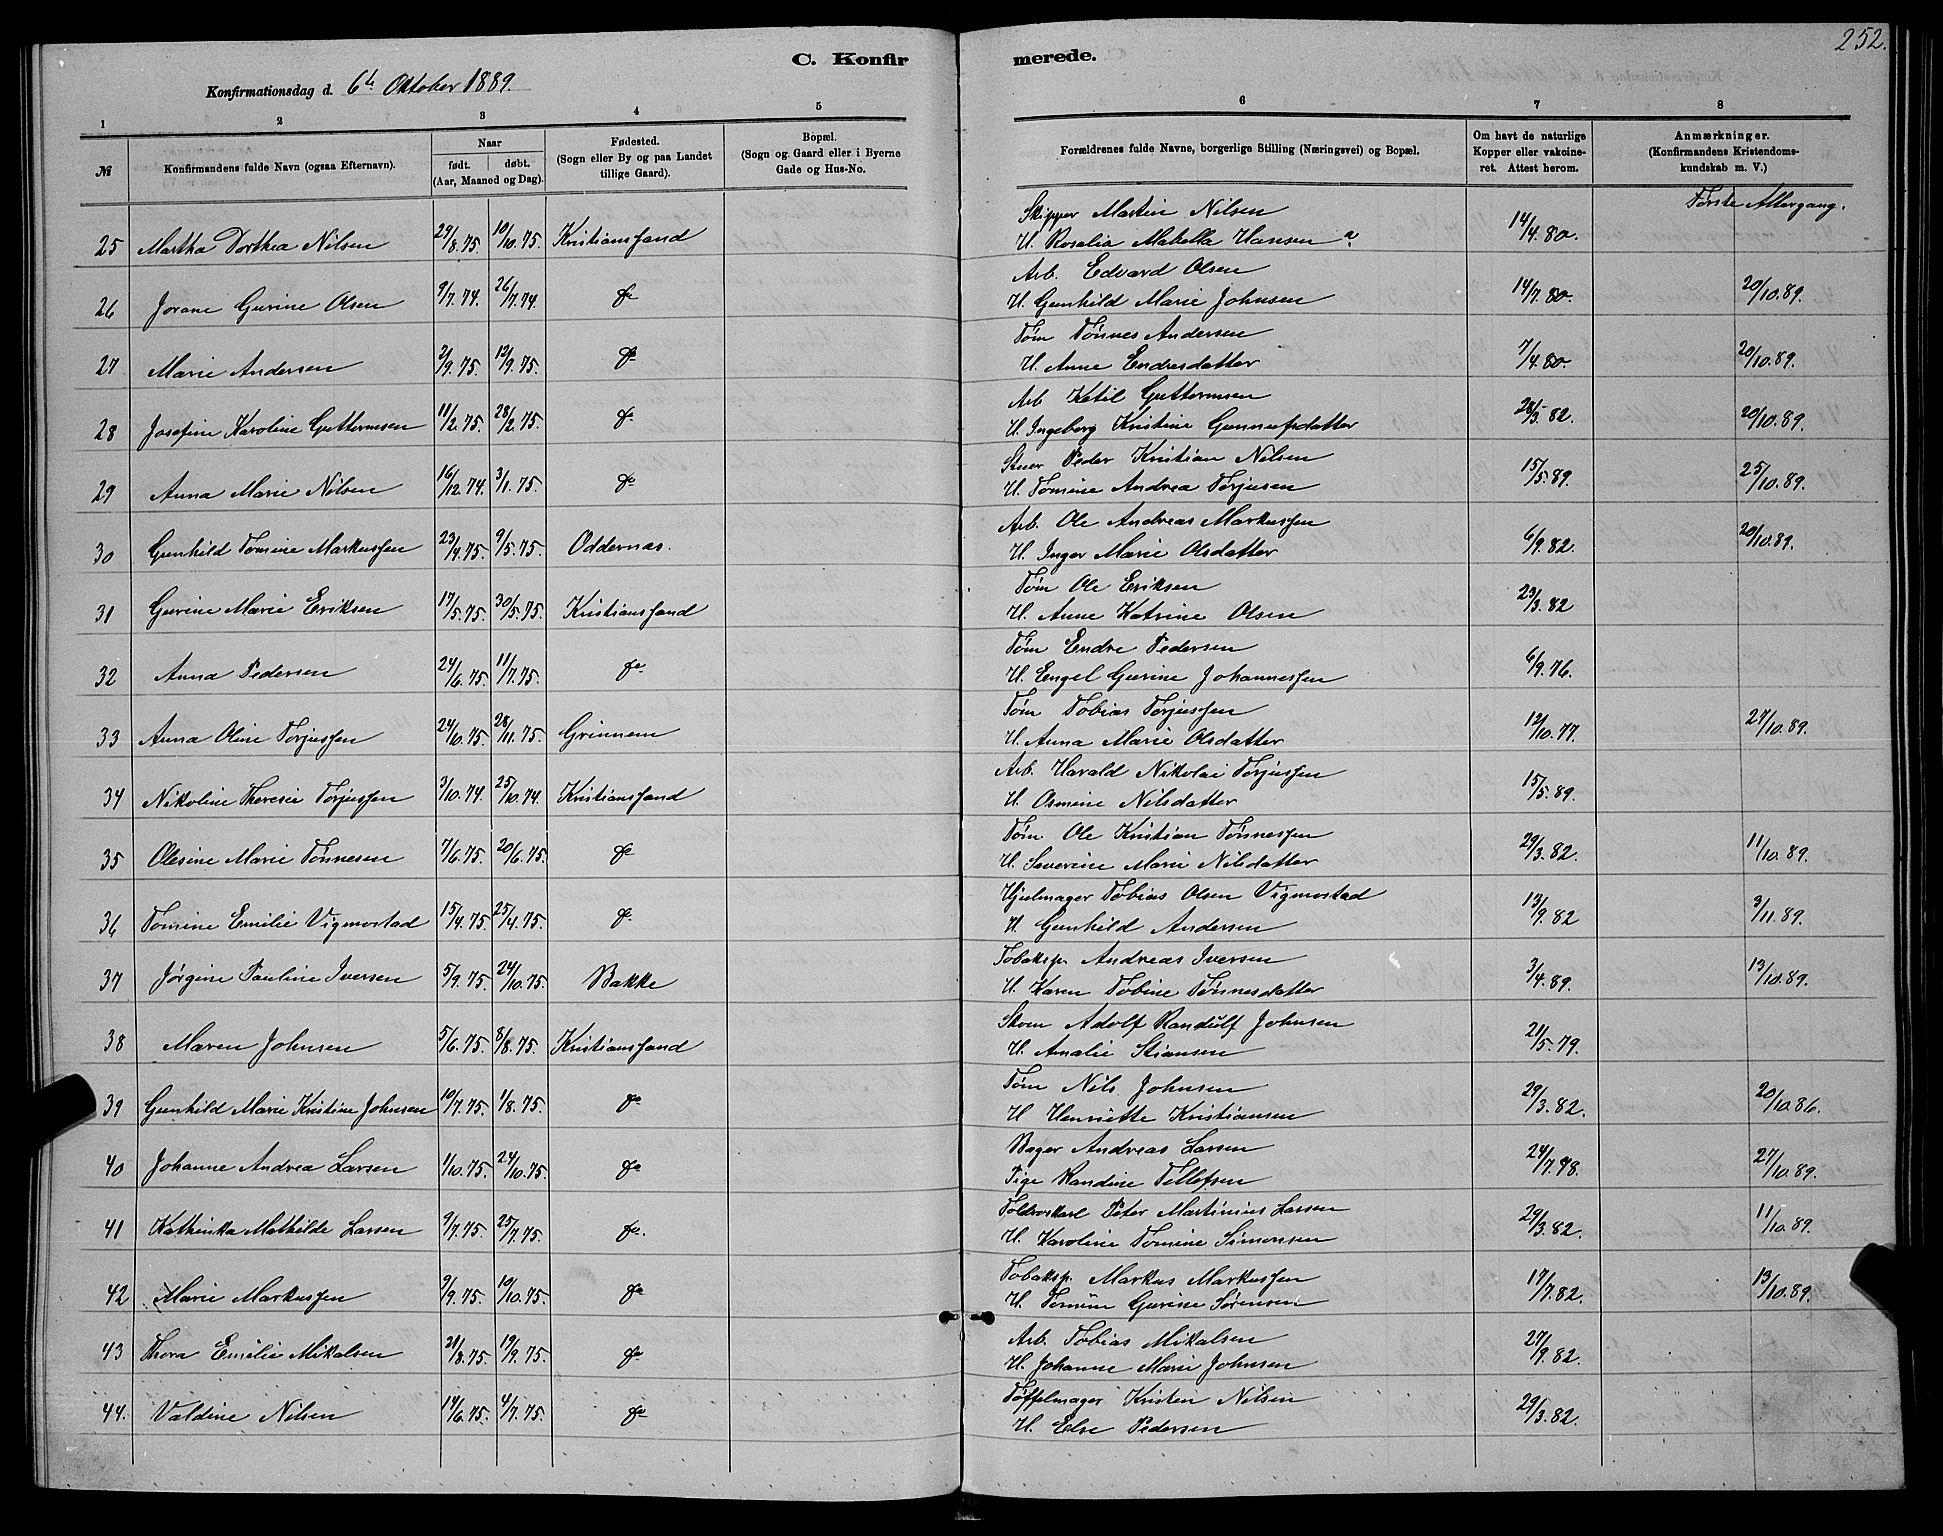 252.
C. Konfirmerede.
Konfirmationsdag d. 6te Oktober 1889.
1 2 3 4 5 6 7 8
№ Konfirmandens fulde Navn (ogsaa Efternavn). Naar født. døbt. (Aar, Maaned og Dag). Fødested. (Sogn eller By og paa Landet tillige Gaard). Bopæl. (Sogn og Gaard eller i Byerne Gade og Hus-No. Forældrenes fulde Navne, borgerlige Stilling (Næringsvei) og Bopæl. Om havt de naturlige Kopper eller vakcineret. Attest herom. Anmærkninger. (Konfirmandens Kristendomskundskab m. V.)
Første Altergang.
25 Martha Dorthea Nilsen 29/8.75. 10/10.75. Kristianssand Skipper Martin Nilsen 14/4.80.
H. Rosalia Mabella Hansen
26 Jorane Gurine Olsen 9/7.74. 26/7.74. do Arb. Edvard Olsen 14/7.80. 20/10.89.
H. Gunhild Marie Johnsen
27 Marie Andersen 2/9.75. 12/9.75. do Tøm Tønnes Andersen 7/4.80. 20/10.89.
H. Anne Endresdatter
28 Josefine Karoline Guttormsen 11/2.75. 28/2.75. do Arb Ketil Guttormsen 28/5.82. 20/10.89.
H. Ingeborg Kristine Gunnufsdatter
29 Anna Marie Nilsen 16/12.74. 3/1.75. do Stuer Peder Kristian Nilsen 15/5.89. 25/10.89.
H. Tomine Andrea Torjusen
30 Gunhild Tomine Markussen 23/4.75. 9/5.75. Oddernæs. Arb. Ole Andreas Markussen 6/9.82. 20/10.89.
H. Inger Marie Olsdatter
31 Gurine Marie Eriksen 17/5.75. 30/5.75. Kristianssand Tøm Ole Eriksen 23/3.82
H. Anne Katrine Olsen
32 Anna Pedersen 24/6.75. 11/7.75. do Tøm Endre Pedersen 6/9.76.
H. Engel Gurine Johannessen
33 Anna Oline Torjussen 24/10.75. 28/11.75. Grinnem Tøm Tobias Torjussen 12/10.77. 27/10.89.
H. Anna Marie Olsdatter
34 Nikoline Theresie Torjussen 3/10.74. 25/10.74. Kristianssand Arb. Harald Nikolai Torjussen 15/5.89.
H. Osmine Nilsdatter
35 Olesine Marie Tønnesen 7/6.75. 20/6.75. do Tøm Ole Kristian Tønnessen 29/3.82. 11/10.89.
H. Severine Marie Nilsdatter
36 Tomine Emilie Vigmostad 15/4.75. 25/4.75. do Hjulmager Tobias Olsen Vigmostad 13/9.82 3/11.89.
H. Gunhild Andersen
37 Jørgine Pauline Iversen 5/9.75. 24/10.75. Bakke Tobaksp. Andreas Iversen 3/4.89. 13/10.89.
H. Karen Tobine Tønnesdatter
38 Maren Johnsen 5/6.75. 8/8.75. Kristianssand Skom Adolf Randulf Johnsen 21/5.79.
H. Amalie Stiansen
39 Gunhild Marie Kristine Johnsen 10/7.75. 1/8.75. do Tøm Nils Johnsen 29/3.82. 20/10.86.
H Henriette Kristiansen
40 Johanne Andrea Larsen 1/10.75. 24/10.75. do Bager Andreas Larsen 24/7.78. 27/10.89.
Pige Randine Tellefsen
41 Kathinka Mathilde Larsen 9/7.75. 25/7.75. do. Toldroskarl Peter Martinius Larsen 29/3.82. 11/10.89.
H. Karoline Tomine Simonsen
42 Marie Markussen 9/9.75. 10/10.75. do Tobaksp. Markus Markussen 17/7.82. 13/10.89.
H. Tomine Gurine Sørensen
43 Thora Emilie Mikalsen 21/8.75. 19/9.75. do Arb. Tobias Mikalsen 27/9.82.
H. Johanne Marie Johnsen
44. Valdine Nilsen 14/6.75. 4/7.75. do Tøffelmager Kristen Nilsen 29/3.82.
H. Else Pedersen